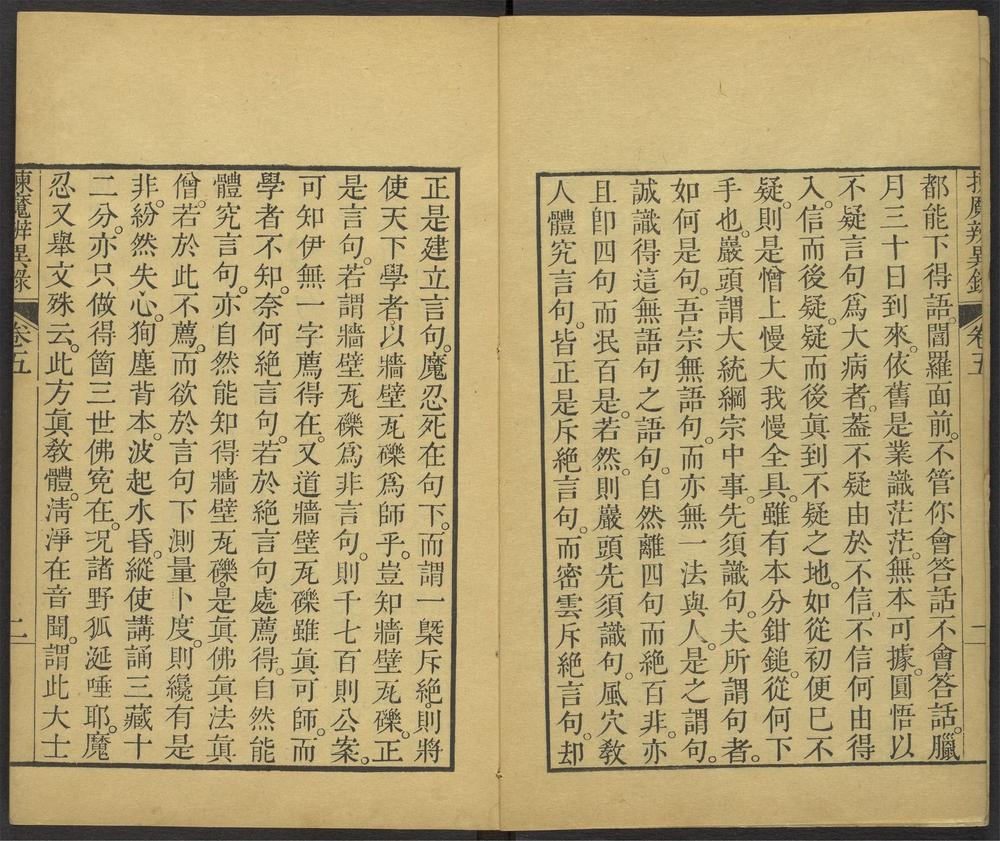 都能下得語。閻羅面前。不管你會答話不會答話。臘
月三十日到來。依舊是業識茫茫。無本可據。圓悟以
不疑言句爲大病者。蓋不疑由於不信。不信何由得
入。信而後疑。疑而後眞到不疑之地。如從初便已不
疑。則是憎上慢大我慢全具。雖有本分鉗鎚。從何下
手也。巖頭謂大統綱宗中事。先須識句。夫所謂句者。
如何是句。吾宗無語句。而亦無一法與人。是之謂句。
誠識得這無語句之語句。自然離四句而絶百非。亦
且卽四句而泯百是。若然。則巖頭先須識句。風穴敎
人體究言句。皆正是斥絶言句。而密雲斥絶言句。却
揀魔辨異錄 卷五 二
正是建立言句。魔忍死在句下。而謂一槩斥絶。則將
使天下學者。以牆壁瓦礫爲師乎。豈知牆壁瓦礫。正
是言句。若謂牆壁瓦礫爲非言句。則千七百則公案。
可知伊無一字薦得在。又道牆壁瓦礫雖眞可師。而
學者不知。奈何絶言句。若於絶言句處薦得。自然能
體究言句。亦自然能知得牆壁瓦礫。是眞佛眞法眞
僧。若於此不薦。而欲於言句下測量卜度。則纔有是
非。紛然失心。狥塵背本。波起水昏。縱使講誦三藏十
二分。亦只做得箇三世佛寃在。況諸野狐涎唾耶。魔
忍又舉文殊云。此方眞敎體。淸淨在音聞。謂此大士
揀魔辨異錄 卷五 二